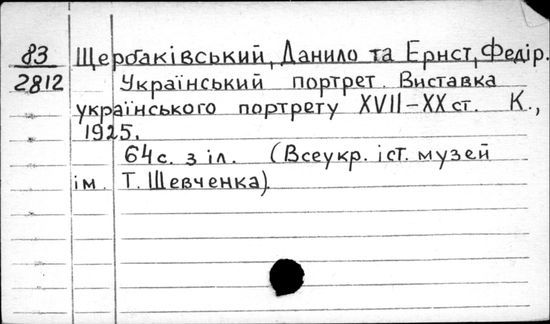 83 Щербаківський, Данило та Ернст, Федір.
2812 Український портрет. Виставка
українського портрету XVII–XX ст. К.,
1925.
64 с. з іл. (Всеукр. іст. музей
ім. Т. Шевченка).